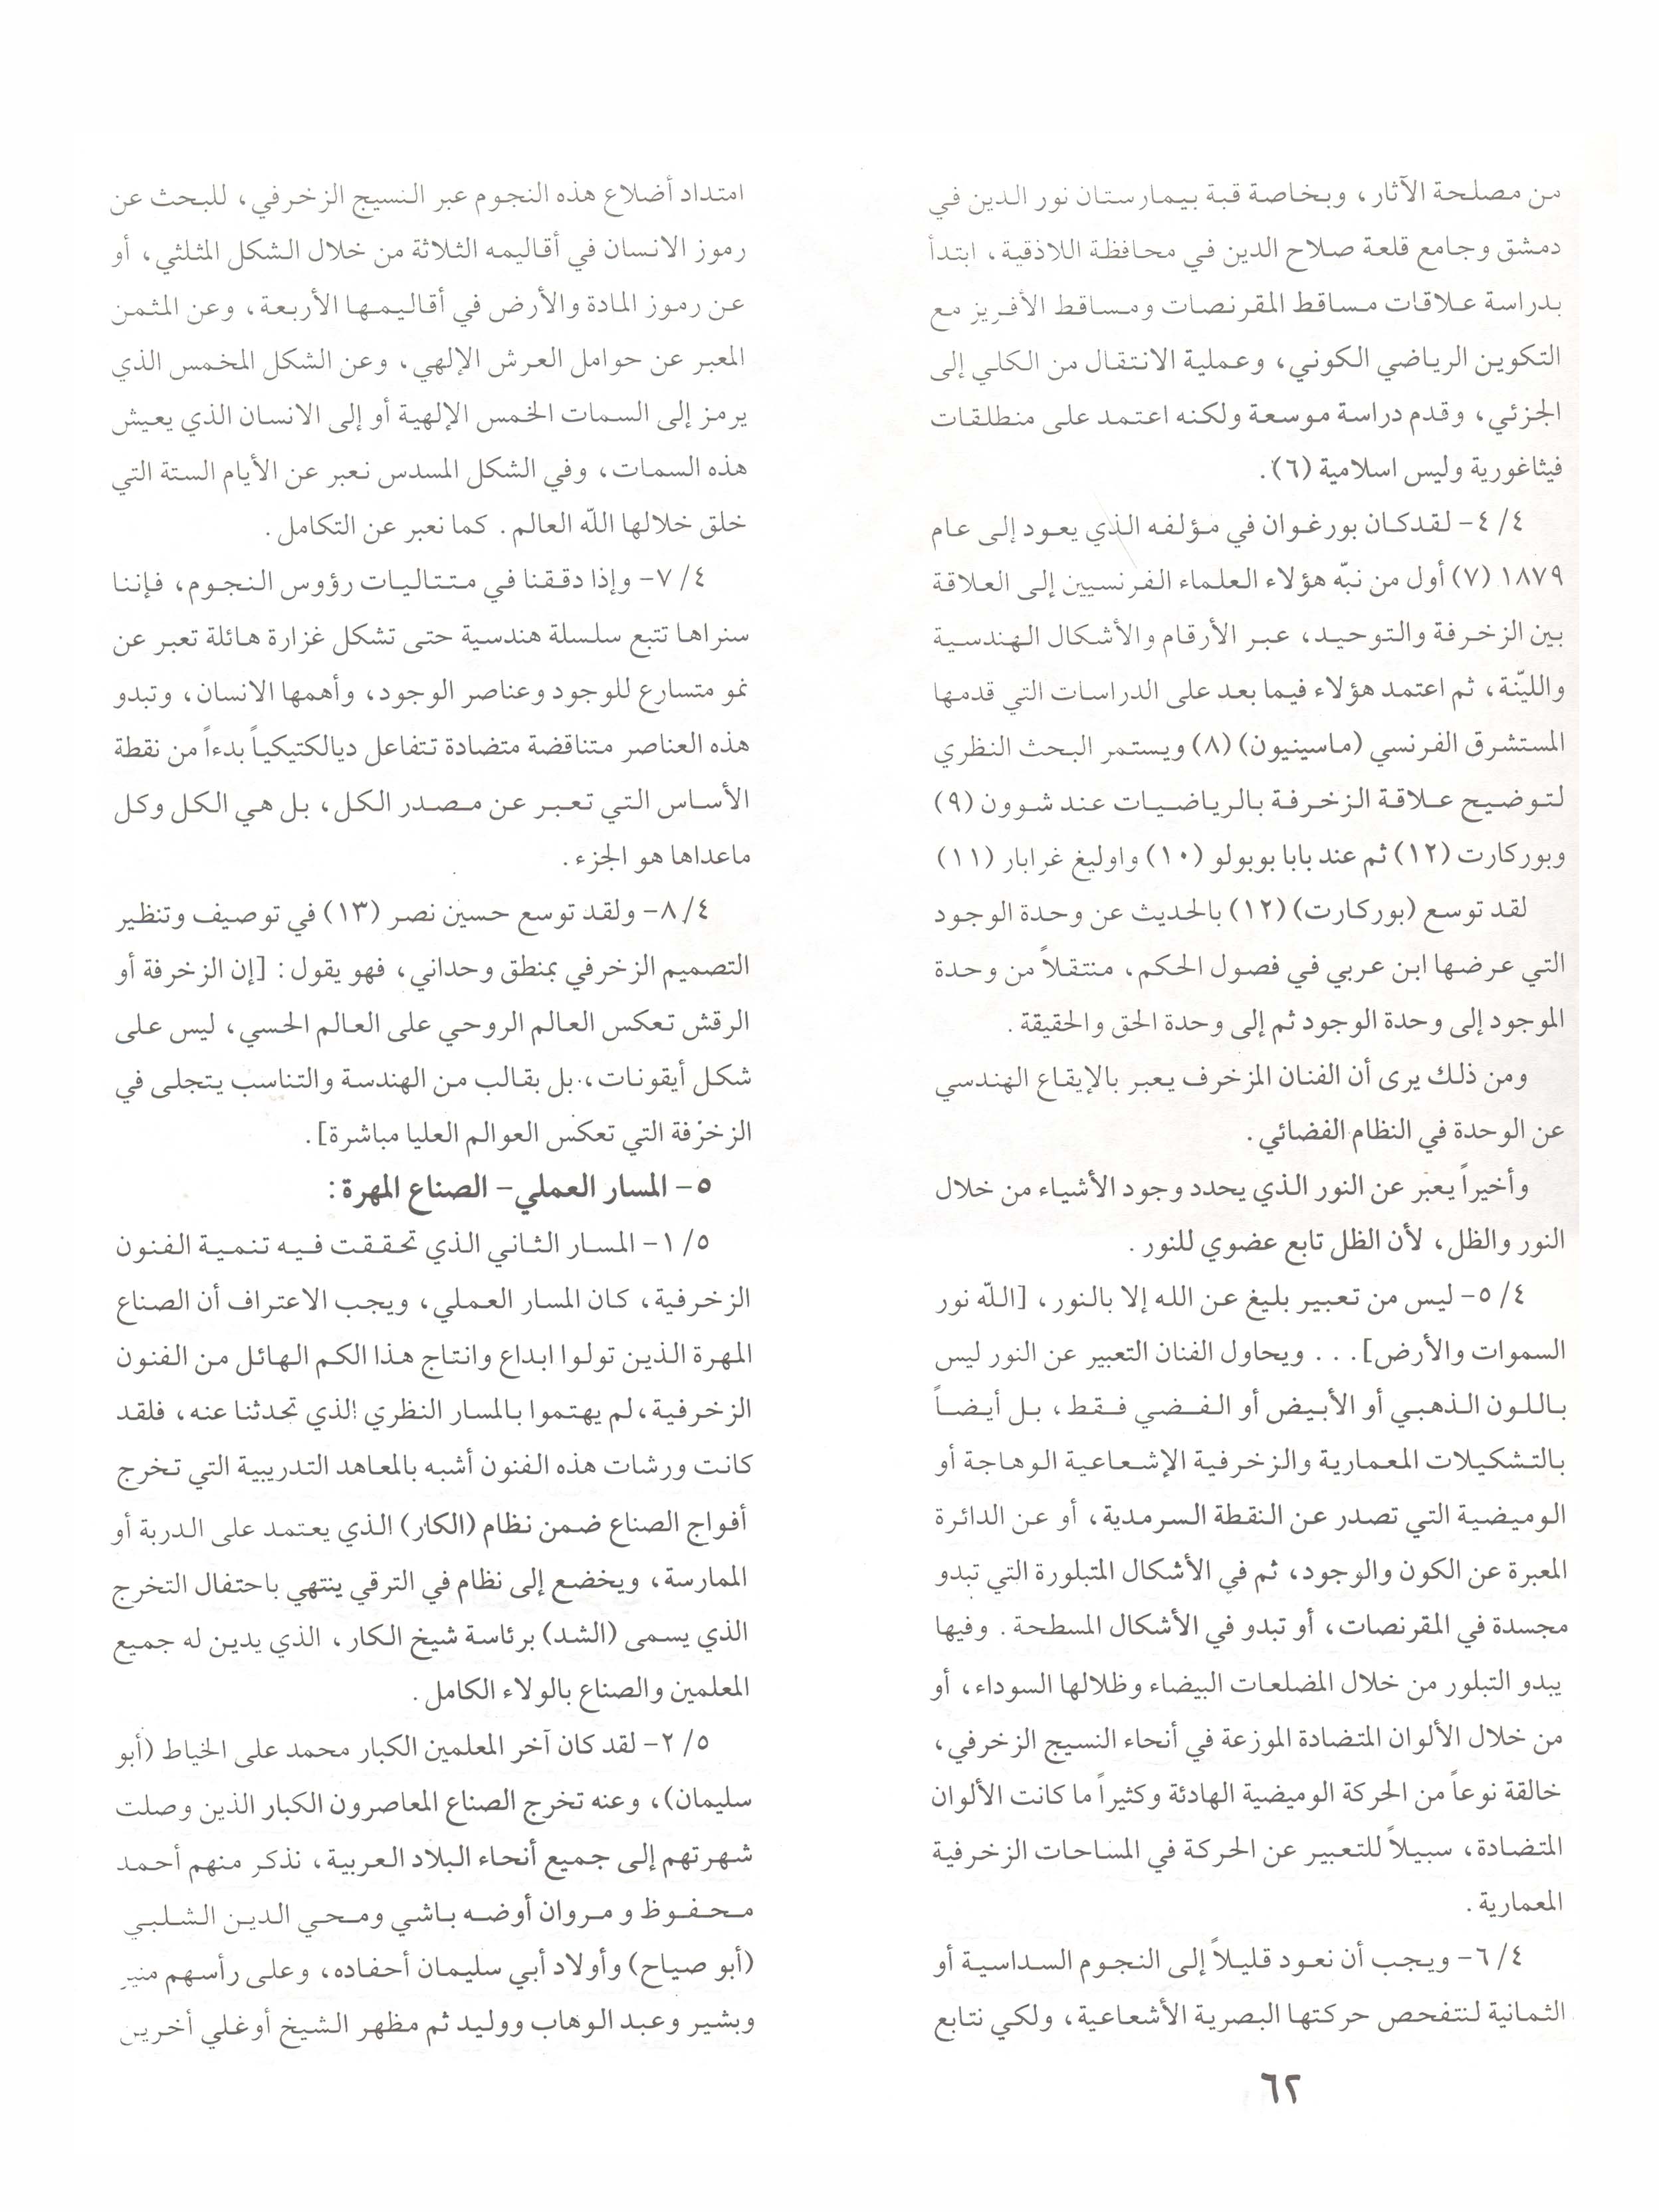 من مصلحة الآثار، وبخاصة قبة بيمارستان نور الدين في
دمشق وجامع قلعة صلاح الدين في محافظة اللاذقية، ابتدأ
بدراسة علاقات مساقط المقرنصات ومساقط الأفريز مع
التكوين الرياضي الكوني، وعملية الانتقال من الكلي إلى
الجزئي، وقدم دراسة موسعة ولكنه اعتمد على منطلقات
فيثاغورية وليس اسلامية (٦).
٤/ ٤- لقدكان بورغوان في مؤلفه الذي يعود إلى عام
١٨٧٩ (٧) أول من نبّه هؤلاء العلماء الفرنسيين إلى العلاقة
بين الزخرفة والتوحيد، عبر الأرقام والأشكال الهندسية
والليّنة، ثم اعتمد هؤلاء فيما بعد على الدراسات التي قدمها
المستشرق الفرنسي (ماسينيون) (٨) ويستمر البحث النظري
لتوضيح علاقة الزخرفة بالرياضيات عند شوون (٩)
وبوركارت (١٢) ثم عند بابا بوبولو (١٠) واوليغ غرابار (١١)
لقد توسع (بوركارت) (١٢) بالحديث عن وحدة الوجود
التي عرضها ابن عربي في فصول الحكم، منتقلاً من وحدة
الموجود إلى وحدة الوجود ثم إلى وحدة الحق والحقيقة.
ومن ذلك يرى أن الفنان المزخرف يعبر بالإيقاع الهندسي
عن الوحدة في النظام الفضائي.
وأخيراً يعبر عن النور الذي يحدد وجود الأشياء من خلال
النور والظل، لأن الظل تابع عضوي للنور.
٤/ ٥- ليس من تعبير بليغ عن الله إلا بالنور، [اللّه نور
السموات والأرض]... ويحاول الفنان التعبير عن النور ليس
باللون الذهبي أو الأبيض أو الفضي فقط، بل أيضاً
بالتشكيلات المعمارية والزخرفية الإشعاعية الوهاجة أو
الوميضية التي تصدر عن النقطة السرمدية، أو عن الدائرة
المعبرة عن الكون والوجود، ثم في الأشكال المتبلورة التي تبدو
مجسدة في المقرنصات، أو تبدو في الأشكال المسطحة. وفيها
يبدو التبلور من خلال المضلعات البيضاء وظلالها السوداء، أو
من خلال الألوان المتضادة الموزعة في أنحاء النسيج الزخرفي،
خالقة نوعاً من الحركة الوميضية الهادئة وكثيراً ما كانت الألوان
المتضادة، سبيلاً للتعبير عن الحركة في المساحات الزخرفية
المعمارية.
٤/ ٦- ويجب أن نعود قليلاً إلى النجوم السداسية أو
الثمانية لنتفحص حركتها البصرية الأشعاعية، ولكي نتابع
امتداد أضلاع هذه النجوم عبر النسيج الزخرفي، للبحث عن
رموز الانسان في أقاليمه الثلاثة من خلال الشكل المثلثي، أو
عن رموز المادة والأرض في أقاليمها الأربعة، وعن المثمن
المعبر عن حوامل العرش الإلهي، وعن الشكل المخمس الذي
يرمز إلى السمات الخمس الإلهية أو إلى الانسان الذي يعيش
هذه السمات، وفي الشكل المسدس نعبر عن الأيام الستة التي
خلق خلالها اللّه العالم. كما نعبر عن التكامل.
٤/ ٧- وإذا دققنا في متتاليات رؤوس النجوم، فإننا
سنراها تتبع سلسلة هندسية حتى تشكل غزارة هائلة تعبر عن
نمو متسارع للوجود وعناصر الوجود، وأهمها الانسان، وتبدو
هذه العناصر متناقضة متضادة تتفاعل ديالكتيكياً بدءاً من نقطة
الأساس التي تعبر عن مصدر الكل، بل هي الكل وكل
ماعداها هو الجزء.
٤/ ٨- ولقد توسع حسين نصر (١٣) في توصيف وتنظير
التصميم الزخرفي بمنطق وحداني، فهو يقول: [إن الزخرفة أو
الرقش تعكس العالم الروحي على العالم الحسي، ليس على
شكل أيقونات، بل بقالب من الهندسة والتناسب يتجلى في
الزخرفة التي تعكس العوالم العليا مباشرة].
٥- المسار العملي- الصناع المهرة:
٥/ ١- المسار الثاني الذي تحققت فيه تنمية الفنون
الزخرفية، كان المسار العملي، ويجب الاعتراف أن الصناع
المهرة الذين تولوا ابداع وانتاج هذا الكم الهائل من الفنون
الزخرفية، لم يهتموا بالمسار النظري الذي تحدثنا عنه، فلقد
كانت ورشات هذه الفنون أشبه بالمعاهد التدريبية التي تخرج
أفواج الصناع ضمن نظام (الكار) الذي يعتمد على الدربة أو
الممارسة، ويخضع إلى نظام في الترقي ينتهي باحتفال التخرج
الذي يسمى (الشد) برئاسة شيخ الكار، الذي يدين له جميع
المعلمين والصناع بالولاء الكامل.
٥/ ٢- لقد كان آخر المعلمين الكبار محمد على الخياط (أبو
سليمان)، وعنه تخرج الصناع المعاصرون الكبار الذين وصلت
شهرتهم إلى جميع أنحاء البلاد العربية، نذكر منهم أحمد
محفوظ و مروان أوضه باشي ومحي الدين الشلبي
(أبو صياح) وأولاد أبي سليمان أحفاده، وعلى رأسهم منير
وبشير وعبد الوهاب ووليد ثم مظهر الشيخ أوغلي أخرين
٦٢